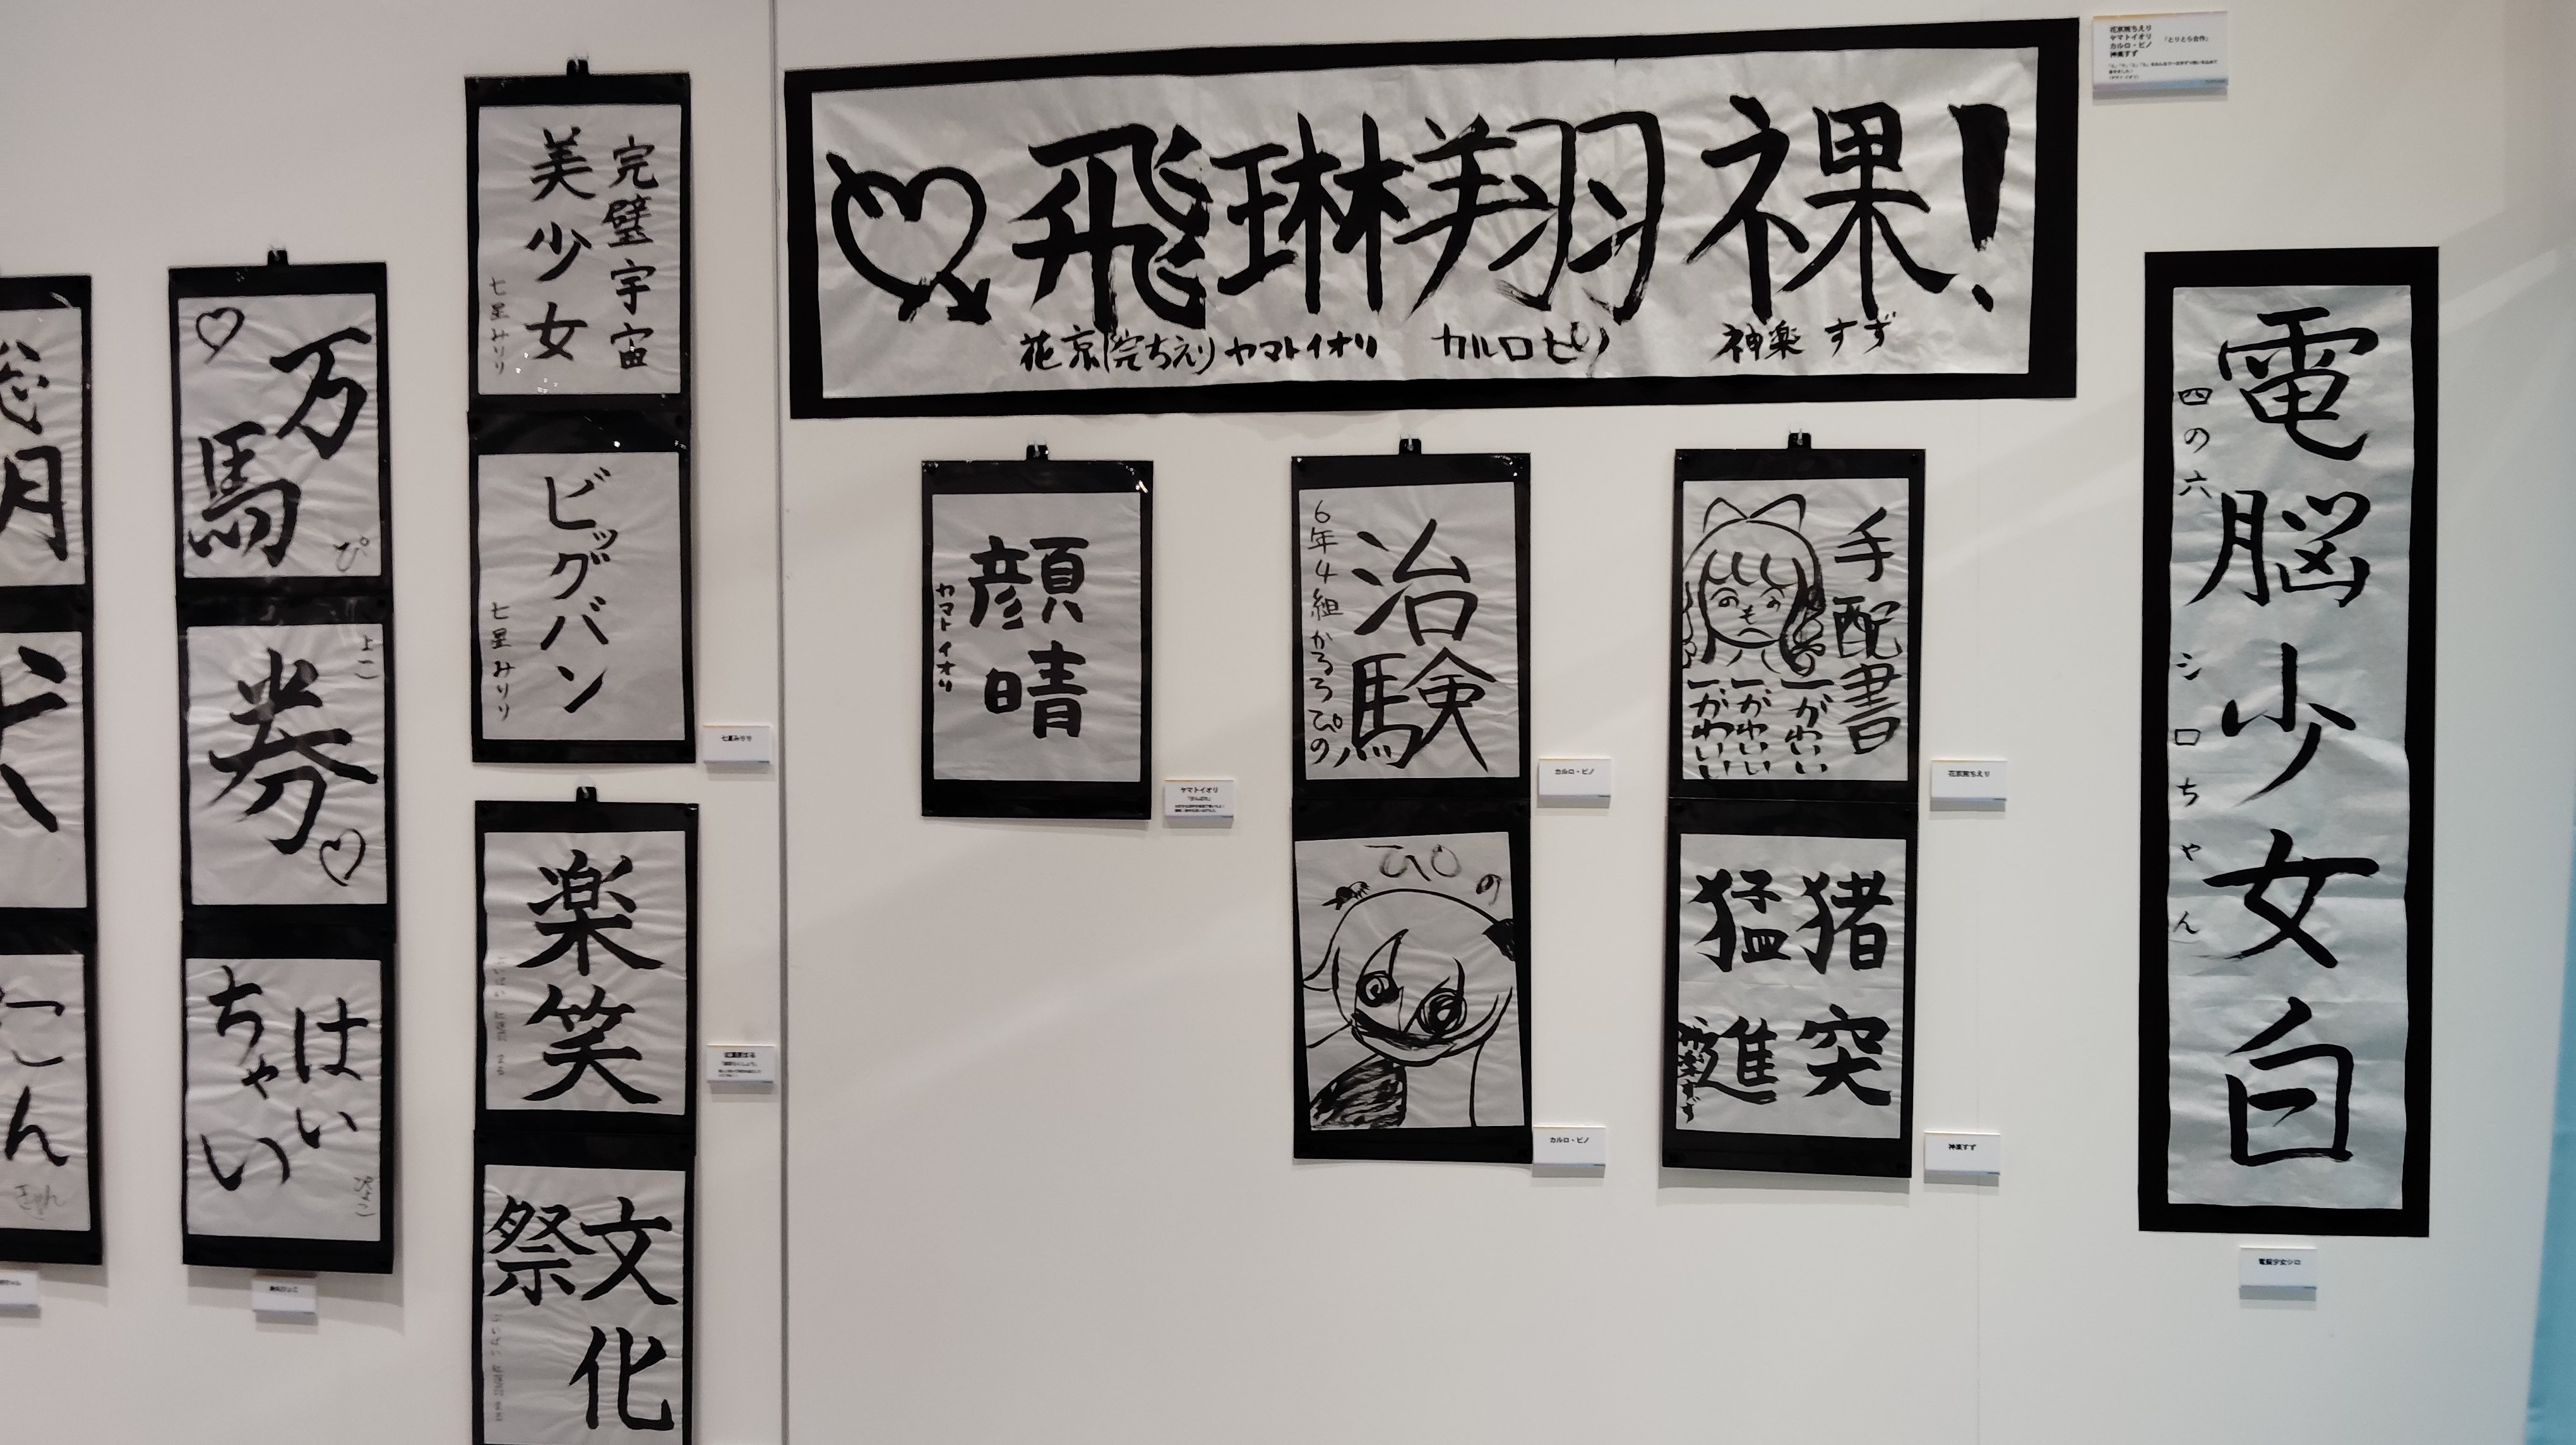 飛琳翔裸!
花京院ちえり ヤマトイオリ カルロピノ 神楽すず
花京院ちえり
ヤマトイオリ
カルロ・ピノ
神楽すず
「とりとら合作」
電脳少女白
四の六 シロちゃん
電脳少女シロ
手配書
一がわいい
一がわいい
一がわいい
花京院ちえり
猪突
猛進
神楽すず
神楽すず
治験
6年4組かるろぴの
カルロ・ピノ
ぴの
カルロ・ピノ
顔晴
ヤマトイオリ
ヤマトイオリ
完璧宇宙
美少女
七星みりり
ビッグバン
七星みりり
七星みりり
楽笑
文化
祭
万
馬
ぴ
券
よこ
はい
ちゃい
ぴよこ